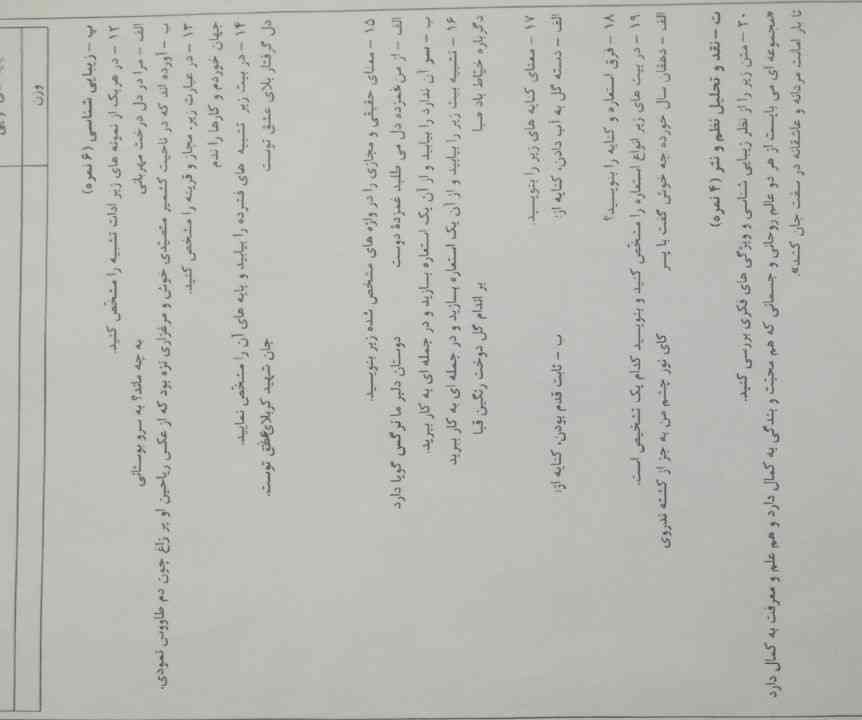 وزن
پ - زیبایی شناسی (۶ نمره)
۱۲ - در هریک از نمونه های زیر ادات تشبیه را مشخص کنید.
الف - مرا در دل درخت مهربانی به چه ماند؟ به سرو بوستانی
ب - آورده اند که در ناحیت کشمیر متصیدی خوش و مرغزاری نزه بود که از عکس ریاحین او پر زاغ چون دم طاووس نمودی.
۱۳ - در عبارت زیر، مجاز و قرینه را مشخص کنید.
جهان خوردم و کارها را ندم
۱۴ - در بیت زیر تشبیه های فشرده را بیابید و پایه های آن را مشخص نمایید.
دل گرفتار بلای عشق توست جان شهید کربلای عشق توست.
۱۵ - معنای حقیقی و مجازی را در واژه های مشخص شده زیر بنویسید.
الف - از من غمزده دل می طلبد غمزدهٔ دوست دوستان دلبر ما نرگس گویا دارد
ب - سو آن ندارد را بیابید و از آن یک استعاره بسازید و در جمله ای به کار ببرید.
۱۶ - تشبیه بیت زیر را بیابید و از آن یک استعاره بسازید و در جمله ای به کار ببرید
دگرباره خیاط باد صبا بر اندام گل دوخت رنگین قبا
۱۷ - معنای کنایه های زیر را بنویسید.
الف - دسته گل به آب دادن، کنایه از: ب - ثابت قدم بودن، کنایه از:
۱۸ - فرق استعاره و کنایه را بنویسید؟
۱۹ - در بیت های زیر انواع استعاره را مشخص کنید و بنویسید کدام یک تشخیص است.
الف - دهقان سال خورده چه خوش گفت با پسر کای نور چشم من به جز از کشته ندروی
ت - نقد و تحلیل نظم و نثر (۴ نمره)
۲۰ - متن زیر را از نظر زیبایی شناسی و ویژگی های فکری بررسی کنید.
«مجموعه ای می بایست از هر دو عالم روحانی و جسمانی که هم محبّت و بندگی به کمال دارد و هم علم و معرفت به کمال دارد
تا بار امانت مردانه و عاشقانه در سفت جان کشد».